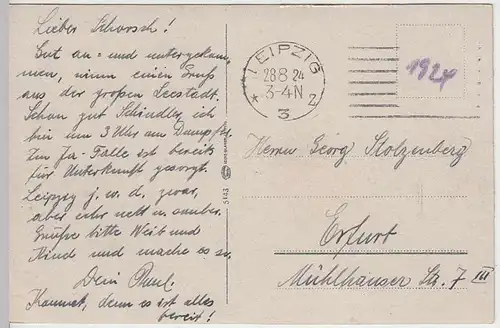 Lieber Schorsch!
Gut an- und untergekom,
men, nimm einen Gruß
aus der großen Seestadt.
Schon gut Schindler, ich
bin um 3 Uhr am
Im Ja-Falle ist bereits
für Unterkunft gesorgt.
Leipzig j.w.d. zwar,
aber sehr nett u. sauber.
Grüße bitte Weib und
Kind und mache es so.
Dein Paul.
Kommt, denn es ist alles
bereit!
5143
LEIPZIG
28.8.24
3-4N
* 3 Z
1924
Herrn Georg Stolzenberg
Erfurt
Mühlhäuser Str. 7 III